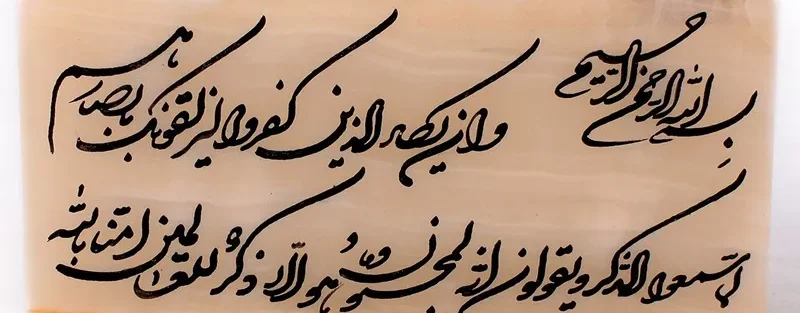 بسم الله الرحمن الرحیم
وان یکاد الذین کفروا لیزلقونک بابصارهم
لما سمعوا الذکر ویقولون انه لمجنون وما هو الا ذکرٌ للعالمین امنّا بالله